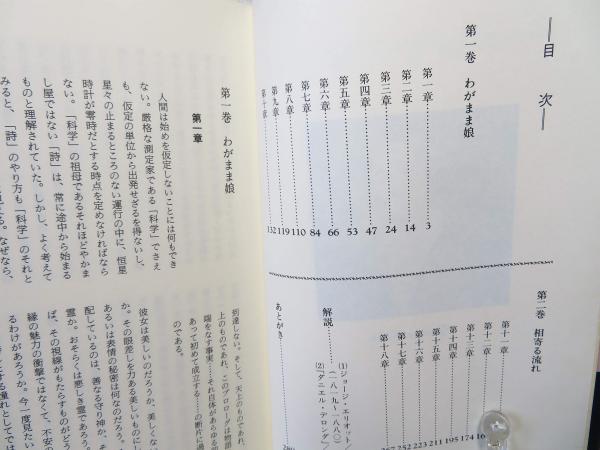 目次
第一巻 わがまま娘
第一章 3
第二章 14
第三章 24
第四章 47
第五章 53
第六章 66
第七章 84
第八章 110
第九章 119
第十章 132
第二巻 相寄る流れ
第十一章
第十二章
第十三章 174
第十四章 195
第十五章 211
第十六章 223
第十七章 252
第十八章 267
解説
(1) ジョージ・エリオット
(一八一九-一八八〇)
(2) 『ダニエル・デロンダ』
あとがき
第一巻 わがまま娘
第一章
人間は始めを仮定しないことには何もでき
ない。厳格な測定家である「科学」でさえ
も、仮定の単位から出発せざるを得ないし、
星々の止まるところのない運行の中に、恒星
時計が零時だとする時点を定めなければなら
ない。「科学」の祖母であるそれほどやかま
し屋ではない「詩」は、常に途中から始まる
ものと理解されていた。しかし、よく考えて
みると、「詩」のやり方も「科学」のそれと
なぜなら、
到達しない。そして、天上のものであれ、
上のものであれ、このプロローグは物語
端をなす事実、それ自体があらゆる
あって初めて成立する
の断片に過
のである。
彼女は美しいのだろうか、美しくない
か。その眼差しを力ある美しいものにし
あるいは表情の秘密は何なのだろう。
配しているのは、善なる守り神か、そ
霊か。おそらくは悪しき霊であろう。
ば、その視線がもたらすものがどう
縁の魅力の衝撃ではなくて、不安の
るわけがあろうか。今一度見たい
とする憧れとしてでは